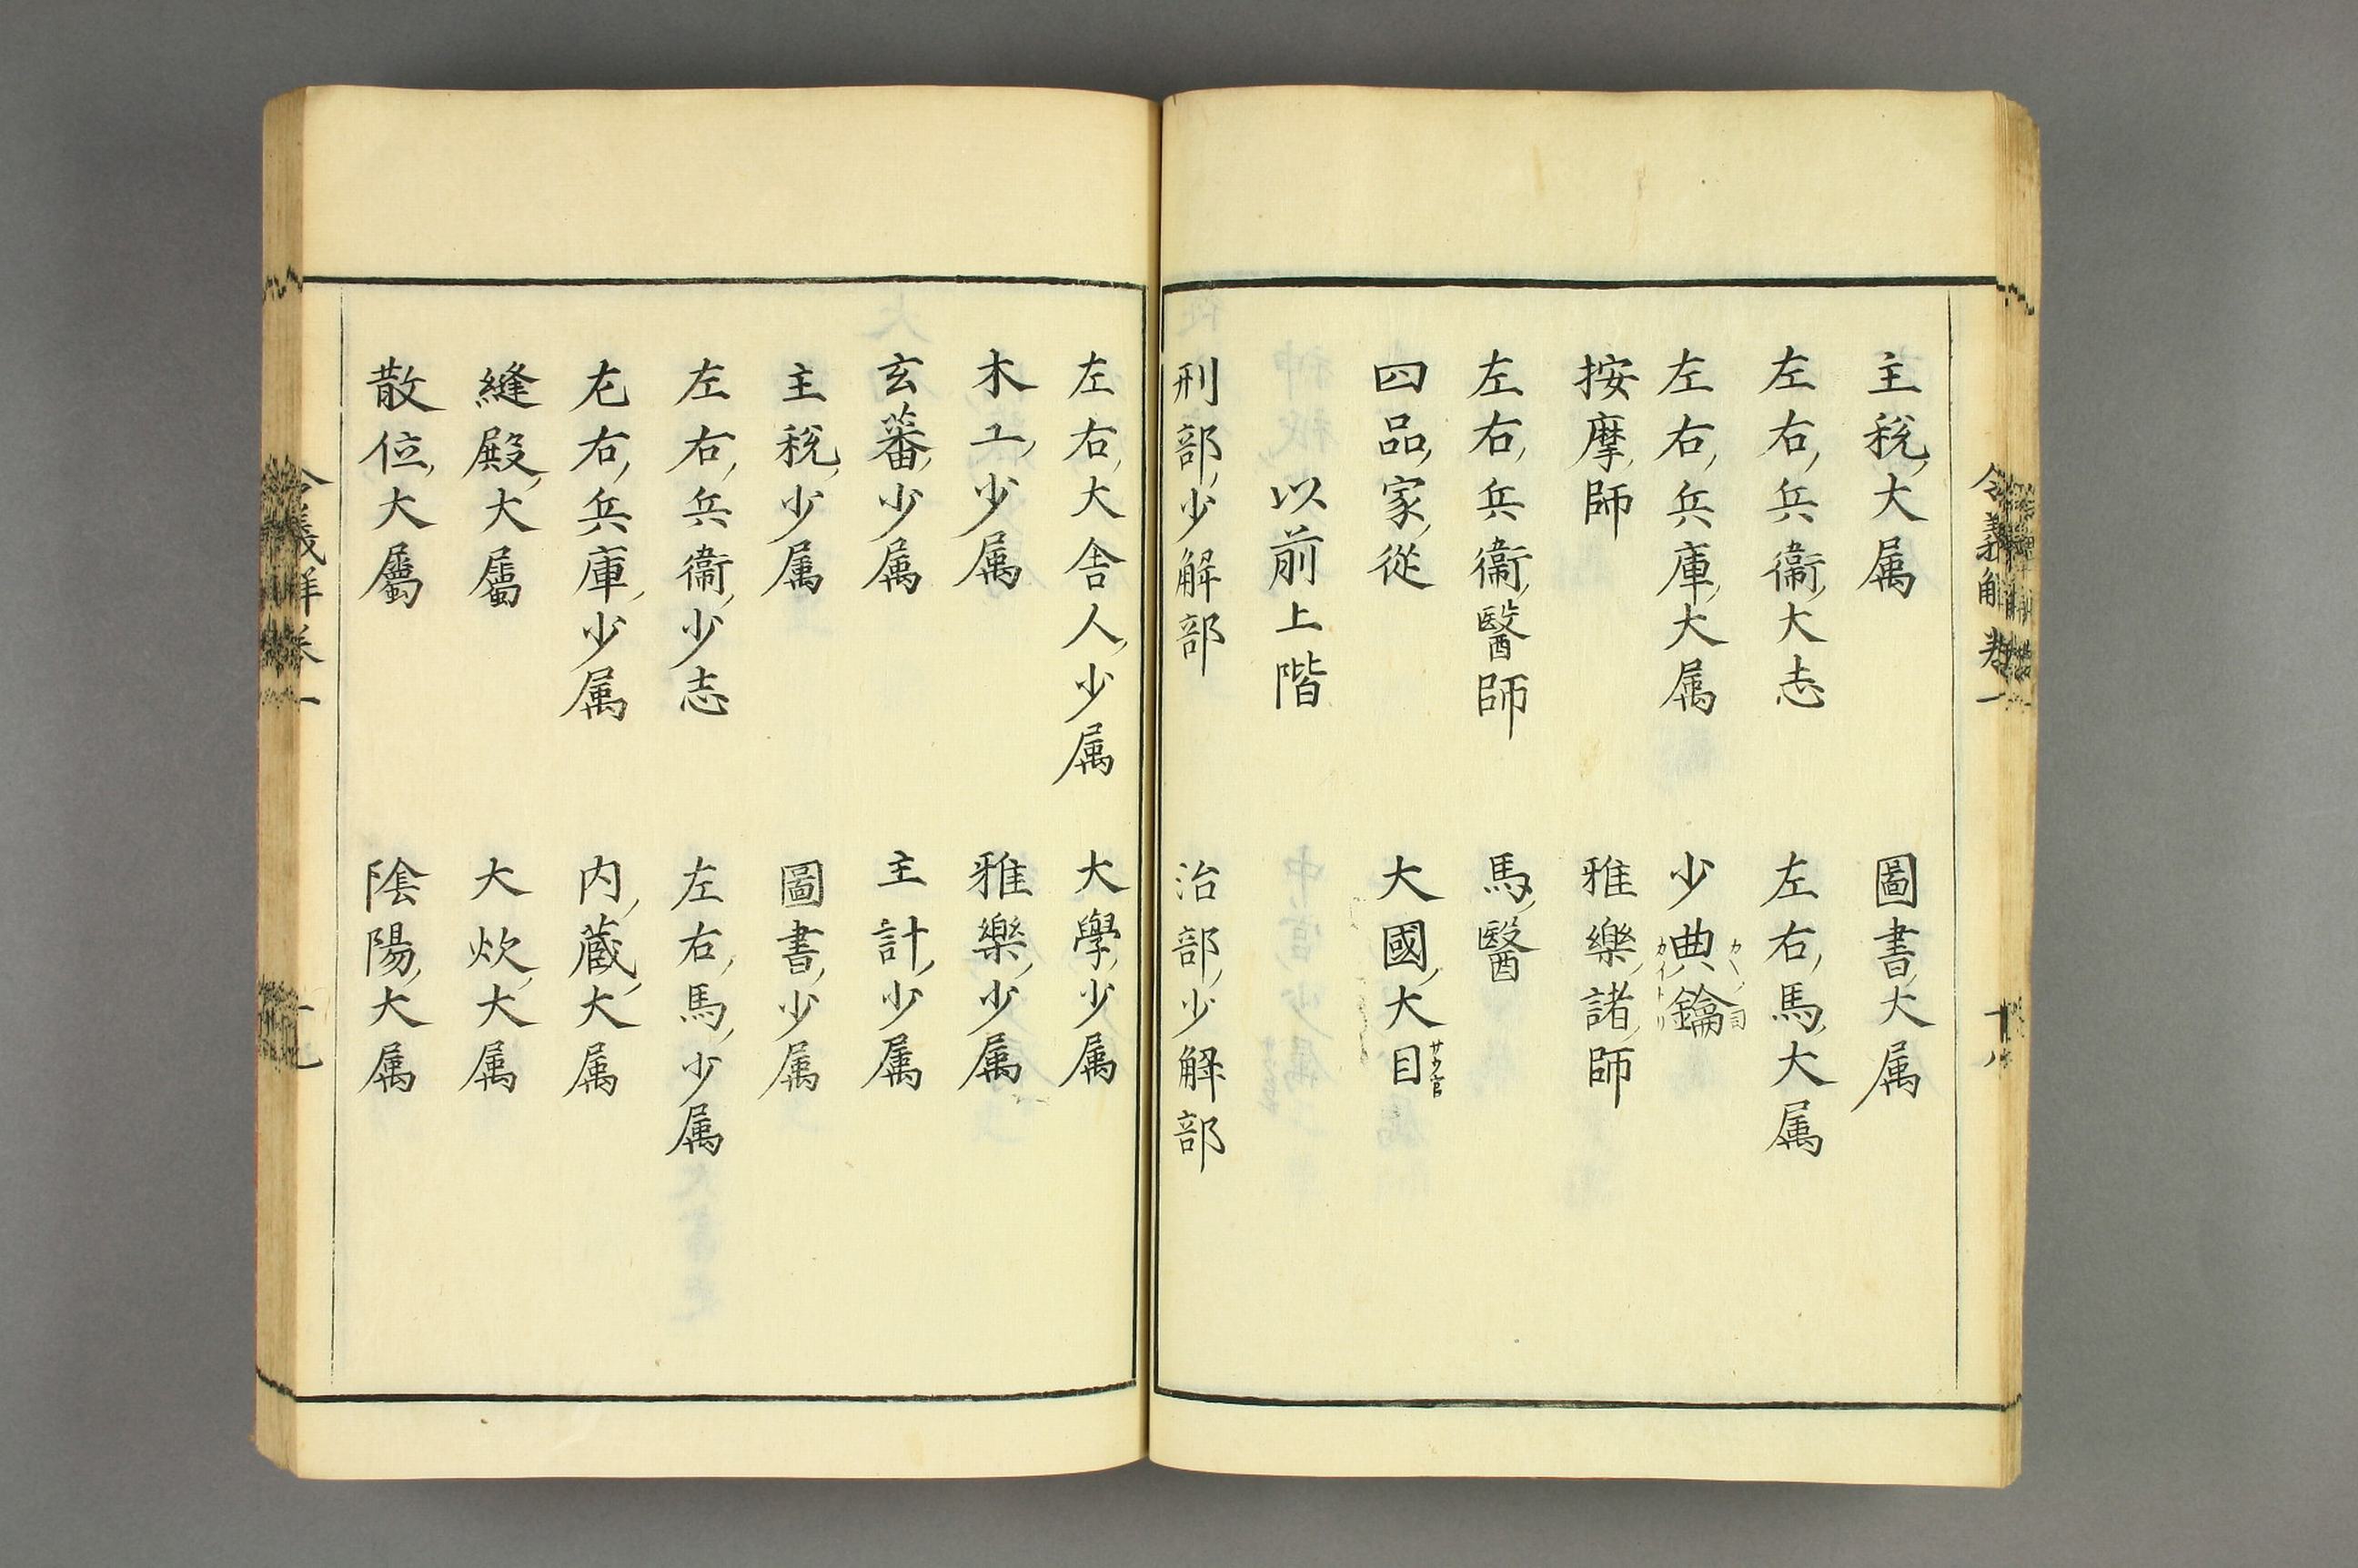 令義解卷一
主税大属　圖書大属
左右兵衞大志　左右馬大属
左右兵庫大属　少典鑰
按摩師　雅樂諸師
左右兵衞醫師　馬醫
四品家從　大國大目
以前上階
刑部少解部　治部少解部
左右大舎人少属　大學少属
木工少属　雅樂少属
玄蕃少属　主計少属
主税少属　圖書少属
左右兵衞少志　左右馬少属
左右兵庫少属　内藏大属
縫殿大屬　大炊大属
散位大屬　陰陽大属